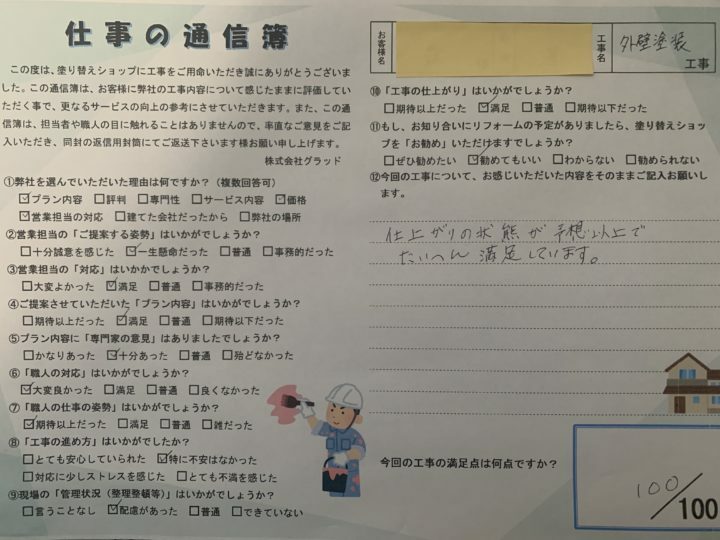 仕事の通信簿
この度は、塗り替えショップに工事をご用命いただき誠にありがとうございま
した。この通信簿は、お客様に弊社の工事内容について感じたままに評価してい
ただく事で、更なるサービスの向上の参考にさせていただきます。また、この通
信簿は、担当者や職人の目に触れることはありませんので、率直なご意見をご記
入いただき、同封の返信用封筒にてご返送下さいます様お願い申し上げます。
株式会社グラッド
①弊社を選んでいただいた理由は何ですか?(複数回答可)
☑プラン内容 □評判 □専門性 □サービス内容 ☑価格
☑営業担当の対応 □建てた会社だったから □弊社の場所
②営業担当の「ご提案する姿勢」はいかがでしょうか?
□十分誠意を感じた ☑一生懸命だった □普通 □事務的だった
③営業担当の「対応」はいかかでしょうか?
□大変よかった ☑満足 □普通 □事務的だった
④ご提案させていただいた「プラン内容」はいかがでしょうか?
□期待以上だった ☑満足 □普通 □期待以下だった
⑤プラン内容に「専門家の意見」はありましたでしょうか?
□かなりあった ☑十分あった □普通 □殆どなかった
⑥「職人の対応」はいかがでしょうか?
☑大変良かった □満足 □普通 □良くなかった
⑦「職人の仕事の姿勢」はいかがでしょうか?
☑期待以上だった □満足 □普通 □雑だった
⑧「工事の進め方」はいかがでしたか?
□とても安心していられた ☑特に不安はなかった
□対応に少しストレスを感じた □とても不満を感じた
⑨現場の「管理状況(整理整頓等)」はいかがでしょうか?
□言うことなし ☑配慮があった □普通 □できていない
お客様名
工事名
外壁塗装
工事
⑩「工事の仕上がり」はいかがでしょうか?
□期待以上だった ☑満足 □普通 □期待以下だった
⑪もし、お知り合いにリフォームの予定がありましたら、塗り替えショッ
プを「お勧め」いただけますでしょうか?
□ぜひ勧めたい ☑勧めてもいい □わからない □勧められない
⑫今回の工事について、お感じいただいた内容をそのままご記入お願いし
ます。
仕上がりの状態が予想以上で
たいへん満足しています。
今回の工事の満足点は何点ですか?
100/100